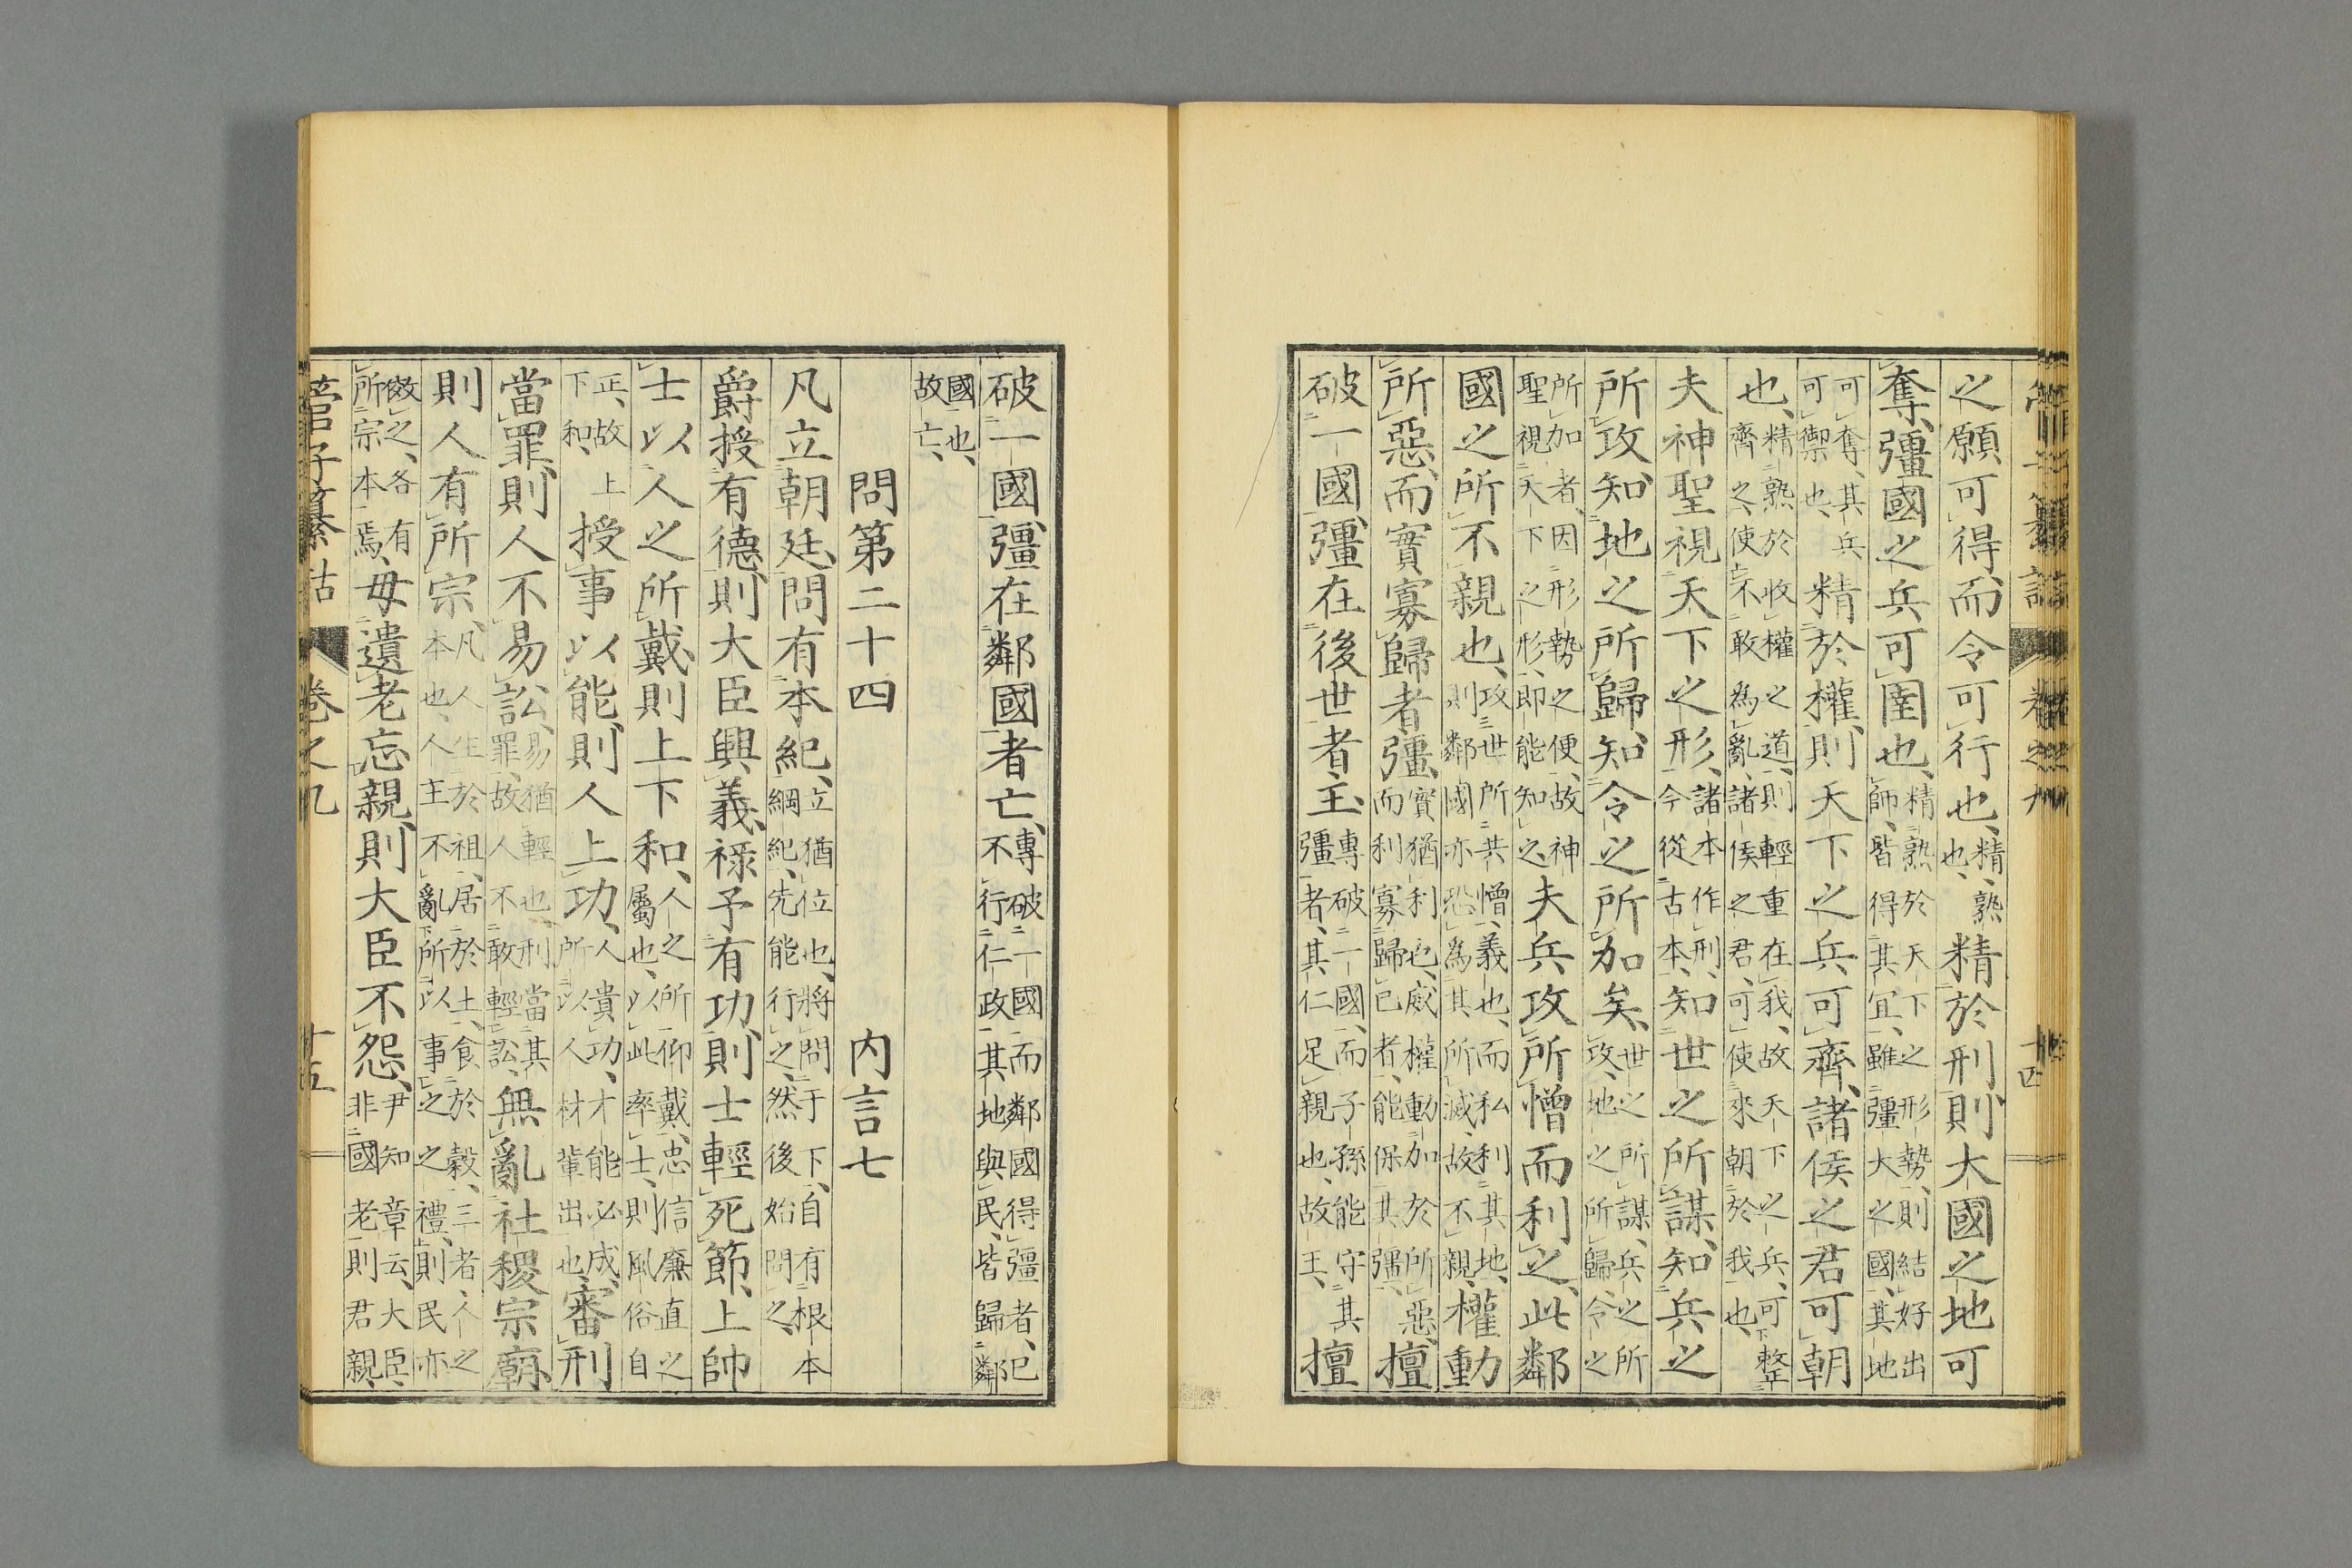 管子纂詁 卷之九 十四
之願可得而令可行也、精、熟也、精於刑則大國之地可
奪、彊國之兵可圉也、精熟於天下之形勢、則結好出師、皆得其宜、雖彊大之國、其地
可奪、其兵可御也、精於權、則天下之兵、可齊、諸侯之君可朝
也、精熟於收權之道、則輕重在我、故天下之兵、可整齊之、使不敢為亂、諸侯之君、可使來朝於我也、
夫神聖視天下之形、諸本作刑、今從古本、知世之所謀、知兵之
所攻、知地之所歸、知令之所加矣、世之所謀、兵之所攻、地之所歸、令之
所加者、因形勢之便、故神聖視天下之形、即能知之、夫兵攻所憎而利之、此鄰
國之所不親也、攻世所共憎、義也、而私利其地、則鄰國亦恐為其所滅、故不親、權動
所惡、而實寡歸者彊、實猶利也、威權動加於所惡、而利寡歸己者、能保其彊、擅
破一國、彊在後世者、王、專破一國、而子孫能守其彊者、其仁足親也、故王、擅
破一國、彊在鄰國者亡、專破一國、而鄰國得彊者、已不行仁政、其地與民、皆歸鄰
國也、故亡、
問第二十四 内言七
凡立朝廷、問有本紀、立猶位也、將問于下、自有根本綱紀、先能行之、然後始問之、
爵授有德、則大臣興義、祿予有功、則士輕死節、上帥
士以人之所戴、則上下和、人之所仰戴、忠信廉直之屬也、以此率士、則風俗自
正、故上下和、授事以能、則人上功、人貴功、才能必成、所以人材輩出也、審刑
當罪、則人不易訟、易猶輕也、刑當其罪、故人不敢輕訟、無亂社稷宗廟、
則人有所宗、凡人生於祖、居於土、食於穀、三者、人之本也、人主不亂所以事之之禮、則民亦
效之、各有所宗本焉、毋遺老忘親、則大臣不怨、尹知章云、大臣、非國老、則君親、
管子纂詁 卷之九 十五